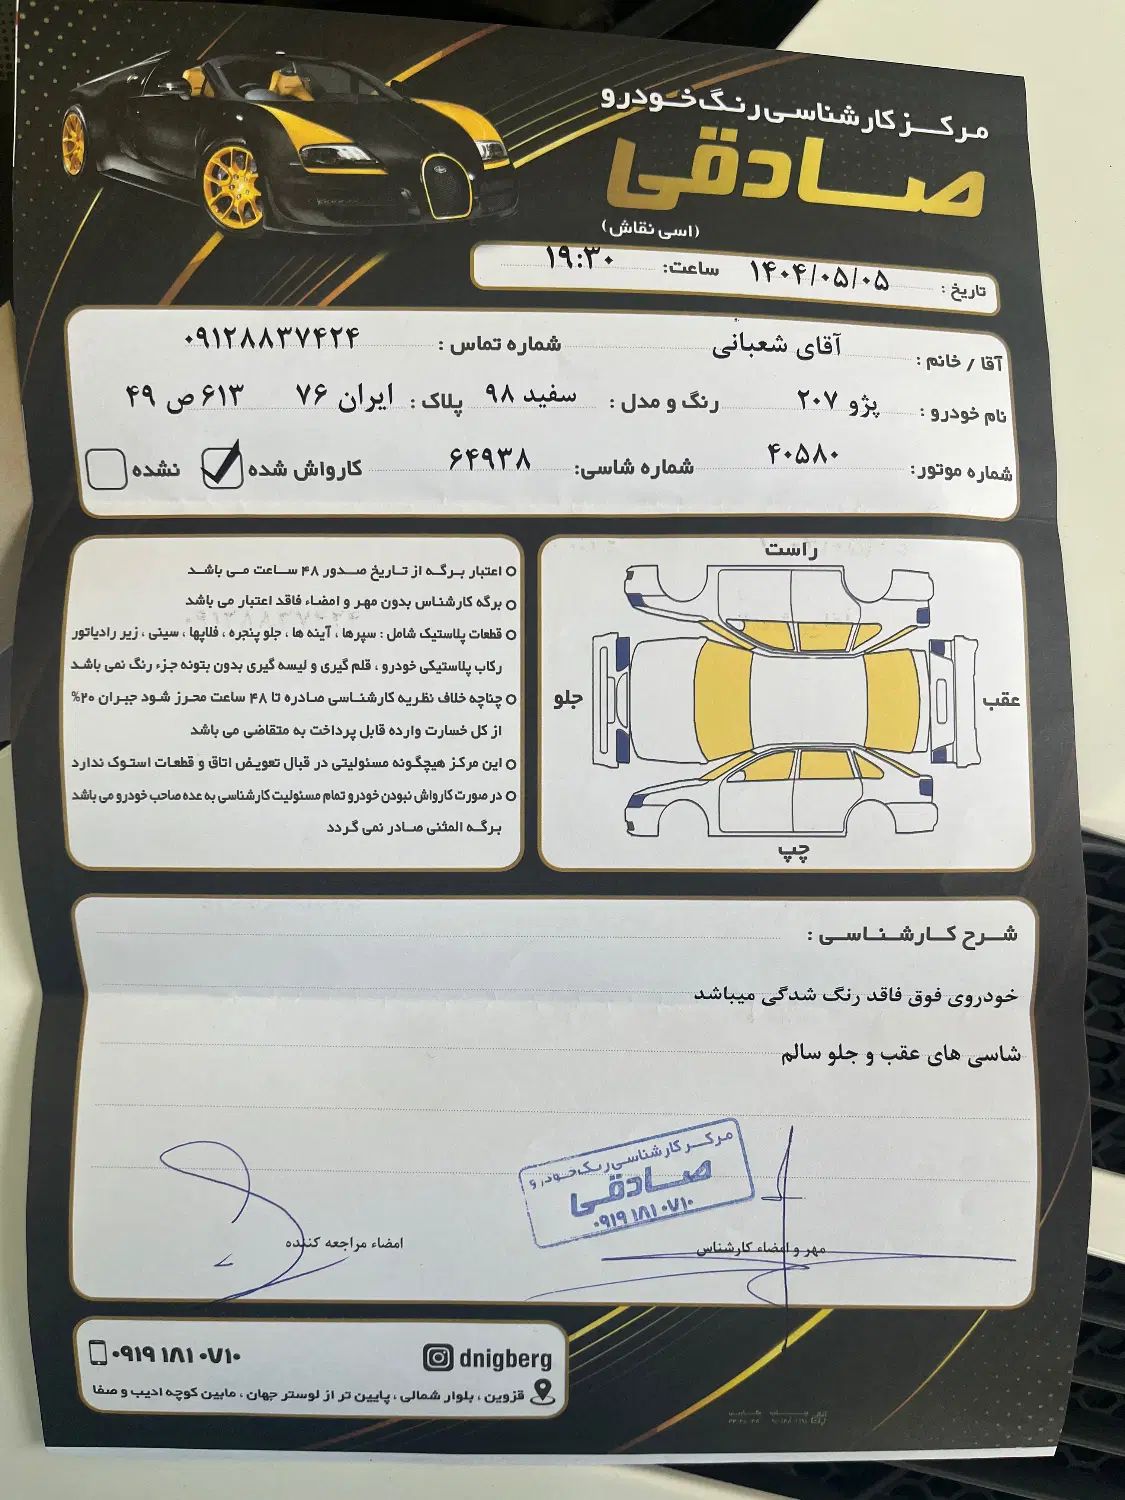 مرکز کارشناسی رنگ خودرو
صادقی
(اسی نقاش)
تاریخ : ۱۴۰۴/۰۵/۰۵ ساعت: ۱۹:۳۰
آقا / خانم : آقای شعبانی شماره تماس : ۰۹۱۲۸۸۳۷۴۲۴
نام خودرو : پژو ۲۰۷ رنگ و مدل : سفید ۹۸ پلاک : ایران ۷۶ ۶۱۳ ص ۴۹
شماره موتور: ۴۰۵۸۰ شماره شاسی: ۶۴۹۳۸ کارواش شده نشده
راست
جلو
عقب
چپ
اعتبار برگه از تاریخ صدور ۴۸ ساعت می باشد
برگه کارشناس بدون مهر و امضاء فاقد اعتبار می باشد
قطعات پلاستیک شامل : سپرها ، آینه ها ، جلو پنجره ، فلاپها ، سینی ، زیر رادیاتور
رکاب پلاستیکی خودرو ، قلم گیری و لیسه گیری بدون بتونه جزء رنگ نمی باشد
چناچه خلاف نظریه کارشناسی صادره تا ۴۸ ساعت محرز شود جبران ۲۰%
از کل خسارت وارده قابل پرداخت به متقاضی می باشد
این مرکز هیچگونه مسئولیتی در قبال تعویض اتاق و قطعات استوک ندارد
در صورت کارواش نبودن خودرو تمام مسئولیت کارشناسی به عده صاحب خودرو می باشد
برگه المثنی صادر نمی گردد
شرح کارشناسی :
خودروی فوق فاقد رنگ شدگی میباشد
شاسی های عقب و جلو سالم
مرکز کارشناسی رنگ خودرو
صادقی
۰۹۱۹ ۱۸۱ ۰۷۱۰
مهر و امضاء کارشناس
امضاء مراجعه کننده
dnigberg
۰۹۱۹ ۱۸۱ ۰۷۱۰
قزوین ، بلوار شمالی ، پایین تر از لوستر جهان ، مابین کوچه ادیب و صفا